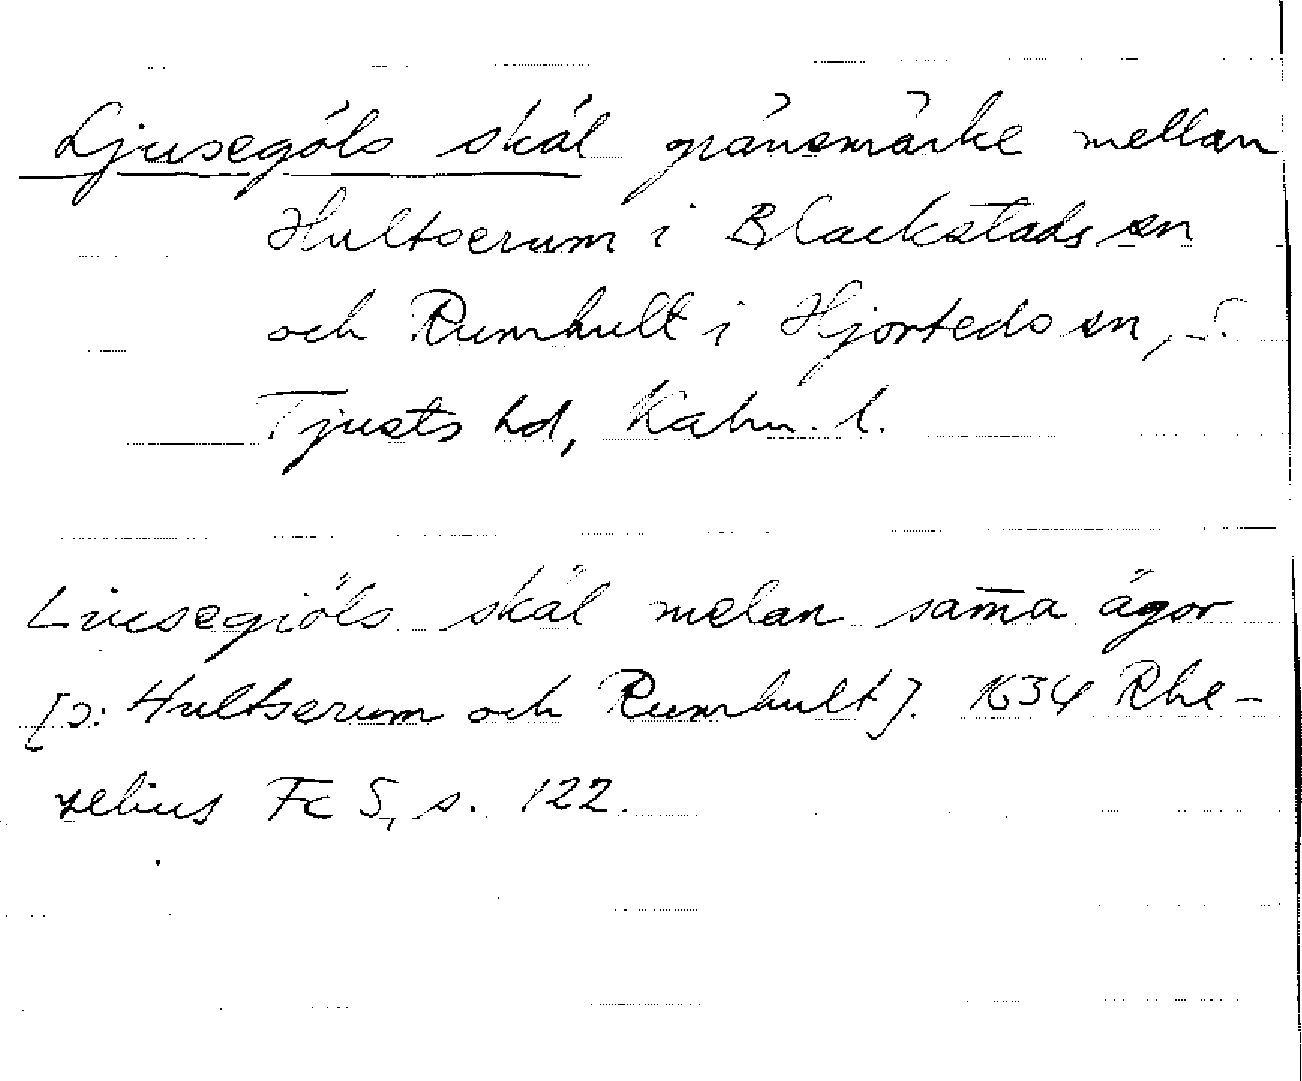 Ljusegöls skäl gränsmärke mellan
Hultserum i Blackstads sn
och Rumhult i Hjorteds sn, S.
Tjusts hd, Kalm. l.
Liusegiöls skäl melan sam̄a ägor
[ɔ: Hultserum och Rumhult]. 1634 Rhe-
zelius Fc 5, s. 122.